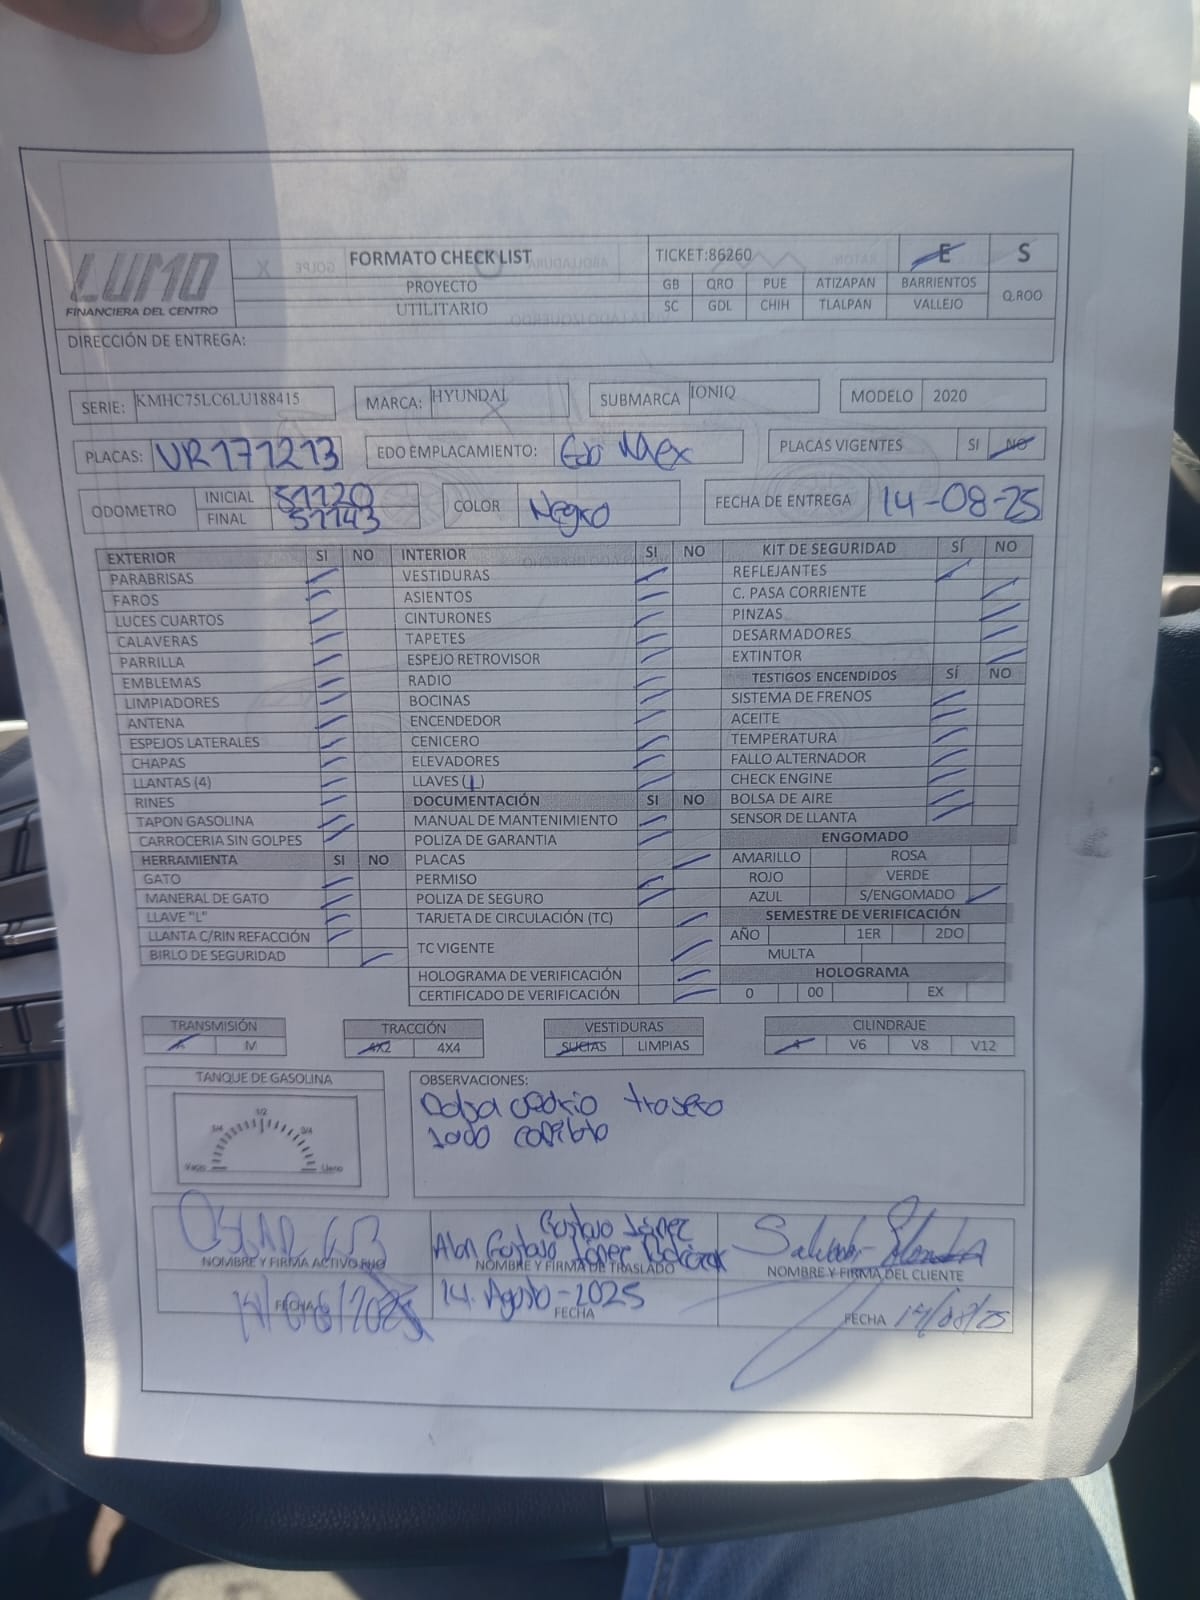 LUMO
FINANCIERA DEL CENTRO
FORMATO CHECK LIST
PROYECTO
UTILITARIO
TICKET:86260 E S
GB QRO PUE ATIZAPAN BARRIENTOS Q.ROO
SC GDL CHIH TLALPAN VALLEJO
DIRECCIÓN DE ENTREGA:
SERIE: KMHC75LC6LU188415 MARCA: HYUNDAI SUBMARCA IONIQ MODELO 2020
PLACAS: EDO EMPLACAMIENTO: Edo Mex PLACAS VIGENTES SI NO
ODOMETRO INICIAL 51120 COLOR Negro FECHA DE ENTREGA 14-08-25
FINAL 51143
EXTERIOR SI NO
PARABRISAS
FAROS
LUCES CUARTOS
CALAVERAS
PARRILLA
EMBLEMAS
LIMPIADORES
ANTENA
ESPEJOS LATERALES
CHAPAS
LLANTAS (4)
RINES
TAPON GASOLINA
CARROCERIA SIN GOLPES
HERRAMIENTA SI NO
GATO
MANERAL DE GATO
LLAVE "L"
LLANTA C/RIN REFACCIÓN
BIRLO DE SEGURIDAD
INTERIOR SI NO
VESTIDURAS
ASIENTOS
CINTURONES
TAPETES
ESPEJO RETROVISOR
RADIO
BOCINAS
ENCENDEDOR
CENICERO
ELEVADORES
LLAVES (1)
DOCUMENTACIÓN SI NO
MANUAL DE MANTENIMIENTO
POLIZA DE GARANTIA
PLACAS
PERMISO
POLIZA DE SEGURO
TARJETA DE CIRCULACIÓN (TC)
TC VIGENTE
HOLOGRAMA DE VERIFICACIÓN
CERTIFICADO DE VERIFICACIÓN
KIT DE SEGURIDAD SÍ NO
REFLEJANTES
C. PASA CORRIENTE
PINZAS
DESARMADORES
EXTINTOR
TESTIGOS ENCENDIDOS SÍ NO
SISTEMA DE FRENOS
ACEITE
TEMPERATURA
FALLO ALTERNADOR
CHECK ENGINE
BOLSA DE AIRE
SENSOR DE LLANTA
ENGOMADO
AMARILLO ROSA
ROJO VERDE
AZUL S/ENGOMADO
SEMESTRE DE VERIFICACIÓN
AÑO 1ER 2DO
MULTA
HOLOGRAMA
0 00 EX
TRANSMISIÓN
A M
TRACCIÓN
4X2 4X4
VESTIDURAS
SUCIAS LIMPIAS
CILINDRAJE
4 V6 V8 V12
TANQUE DE GASOLINA
1/2
Vacio Lleno
OBSERVACIONES:
trasero
NOMBRE Y FIRMA ACTIVO FIJO
FECHA
Alan Gustavo
NOMBRE Y FIRMA DE TRASLADO
14. Agosto-2025
FECHA
NOMBRE Y FIRMA DEL CLIENTE
FECHA 14/08/25